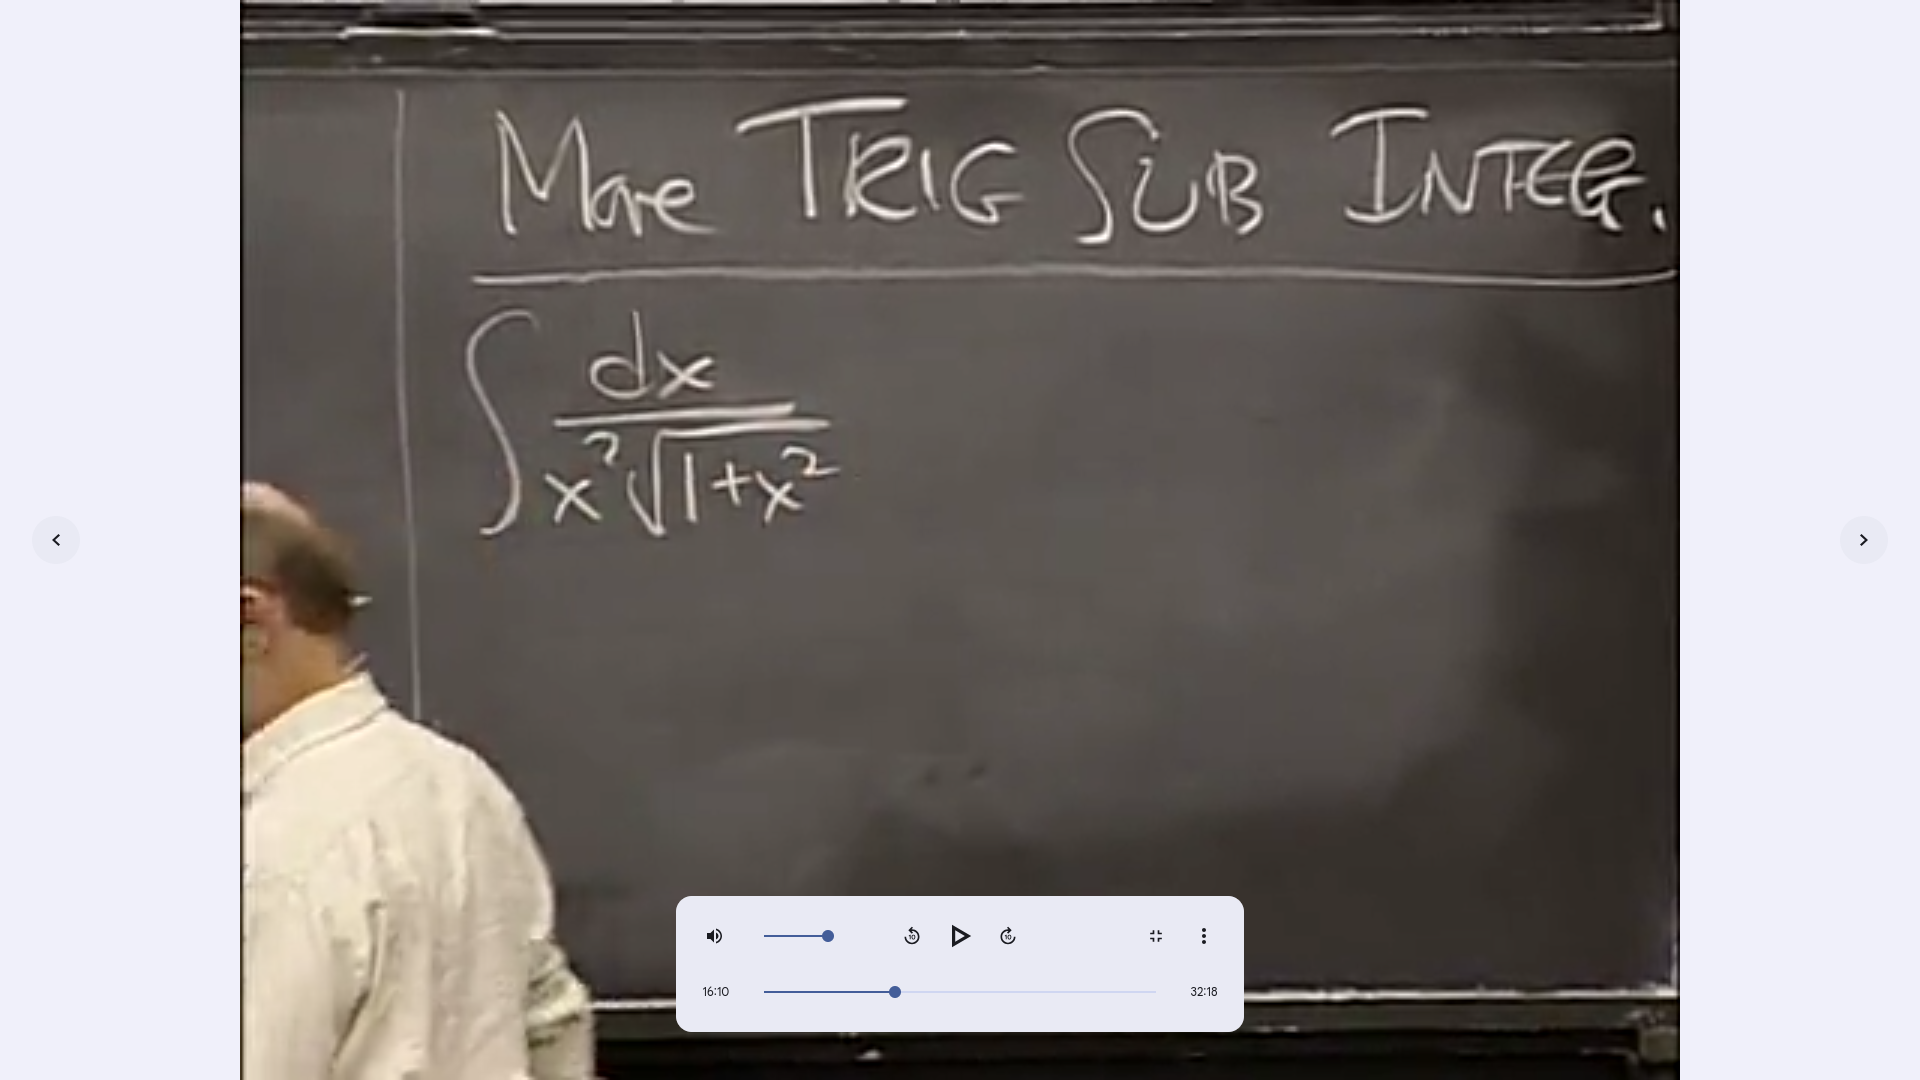 More TRIG SUB INTEG.
∫ dx / x²√1+x²
16:10
32:18